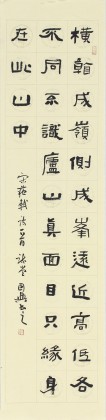 橫看成嶺側成峯遠近高低各
不同不識廬山真面目只緣身
在此山中
宋蘇軾詩